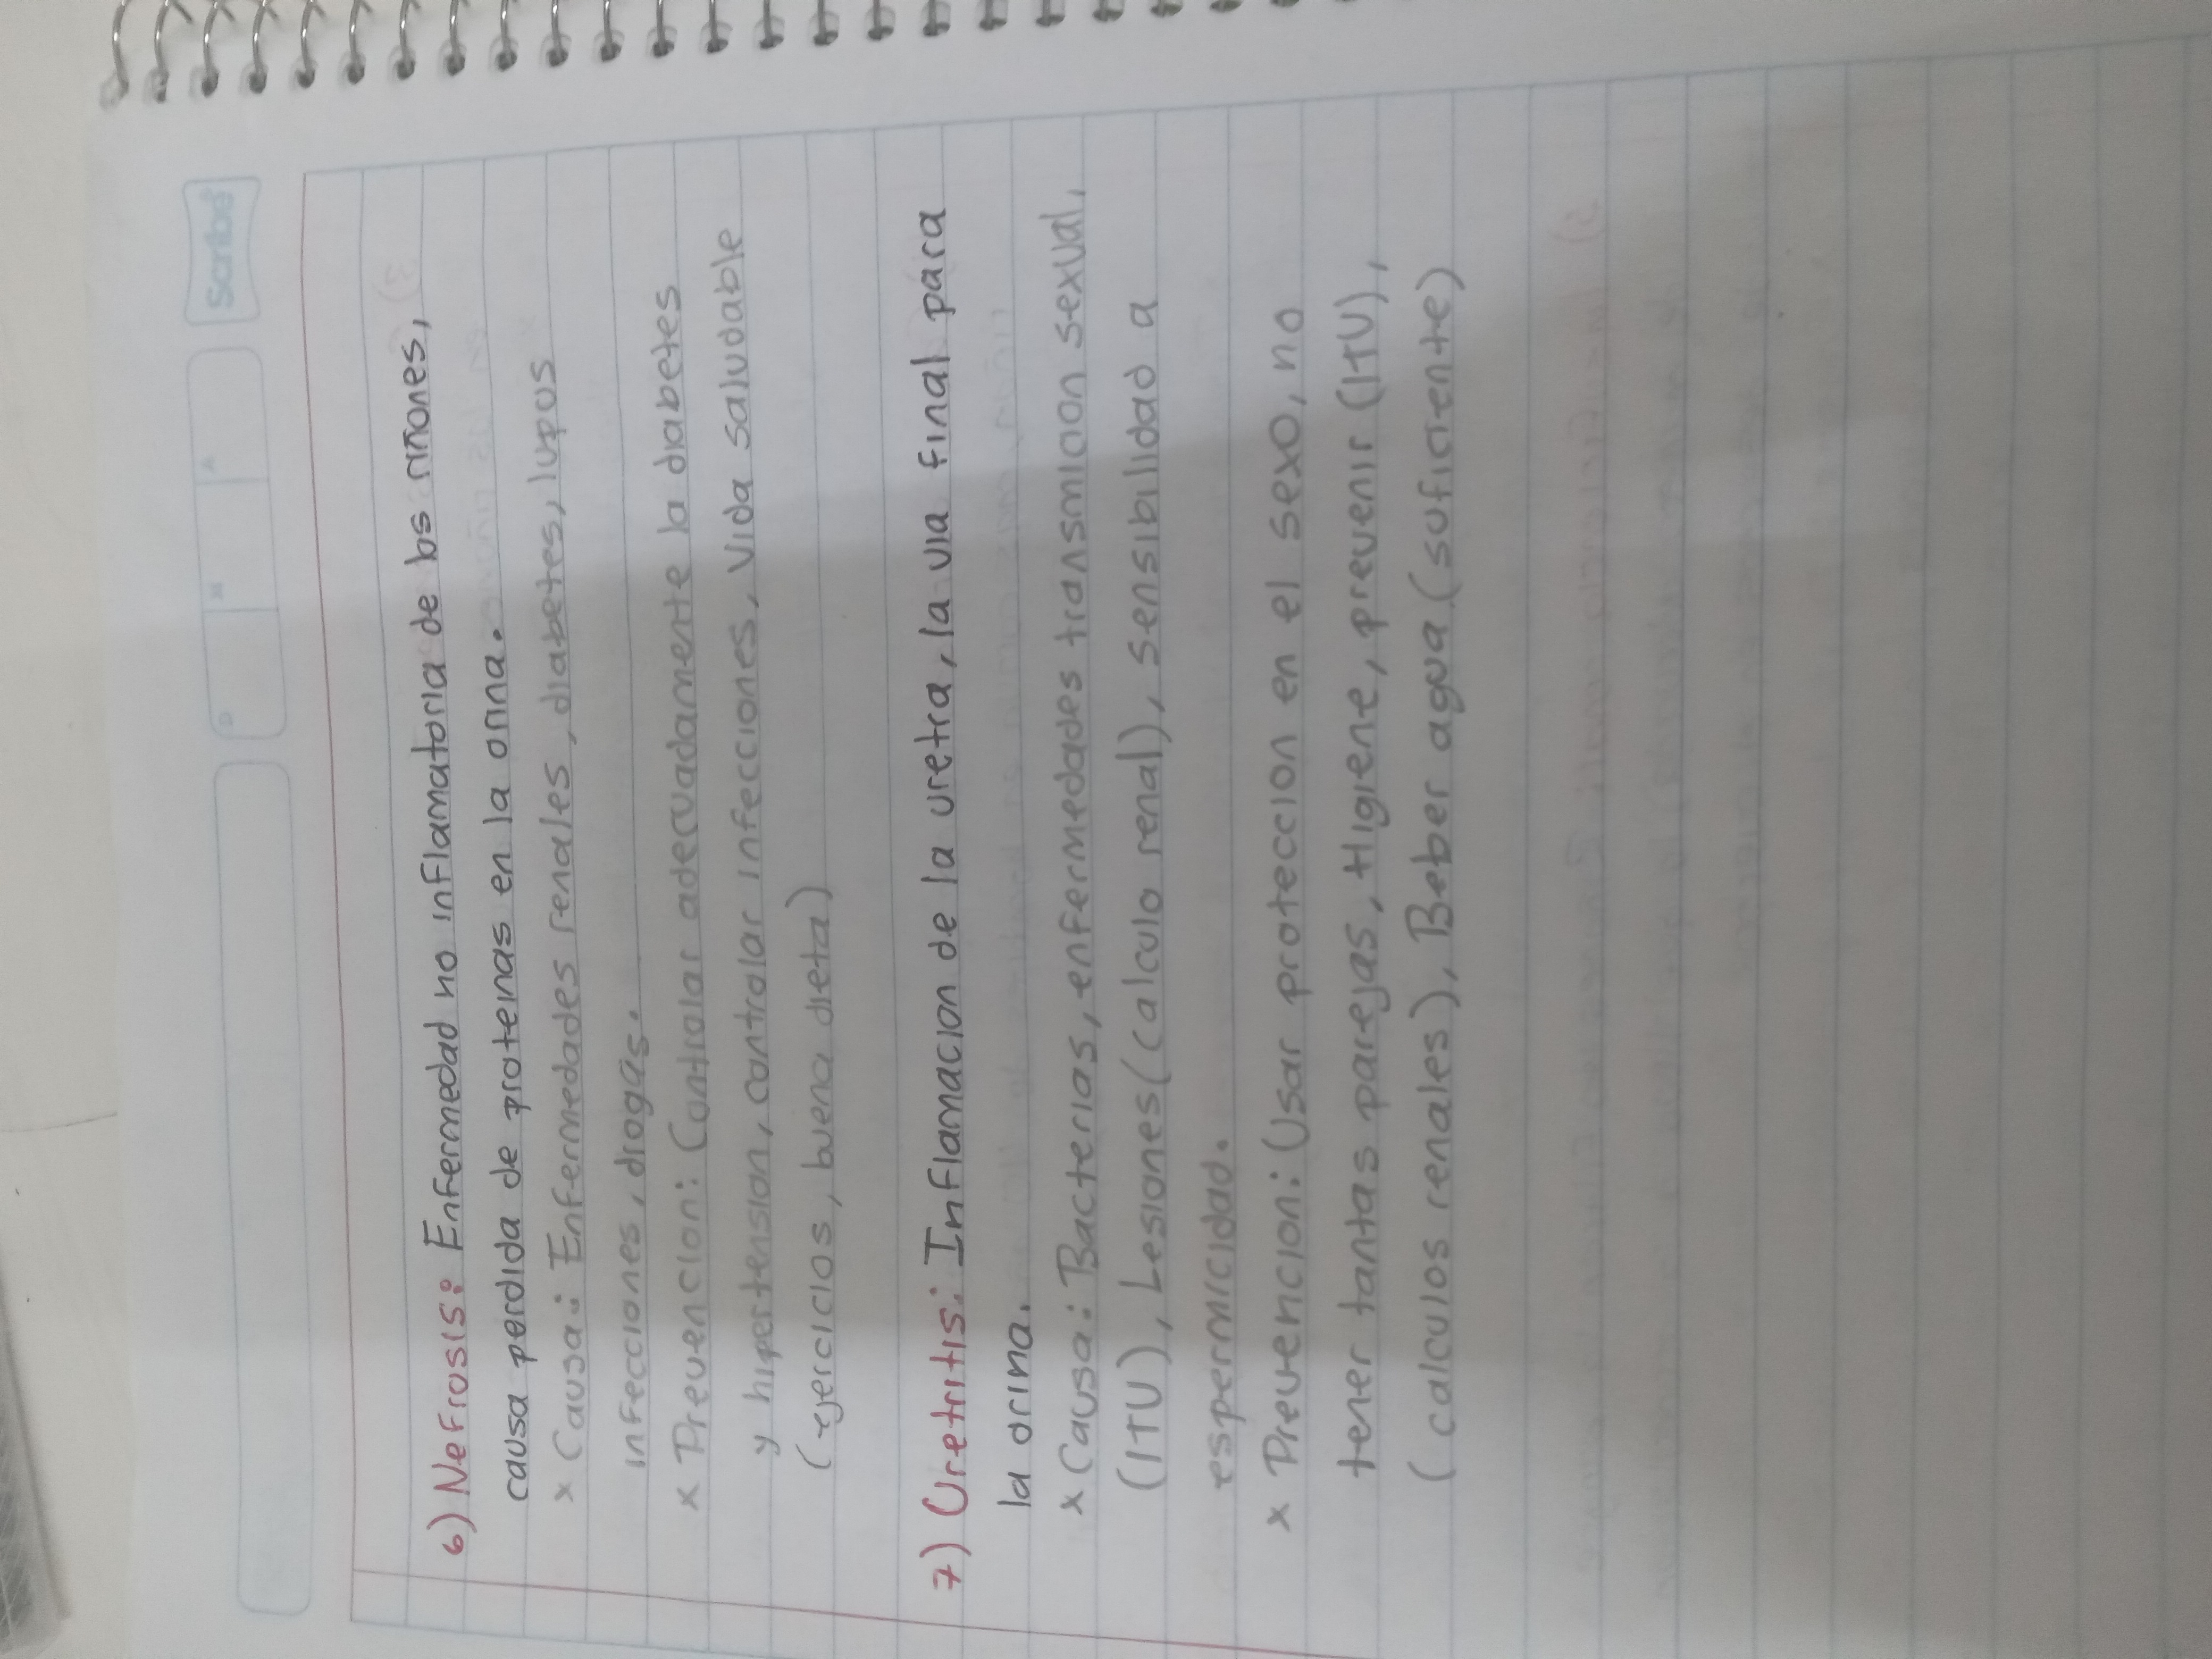 Scribe
D M A
6) Nefrosis: Enfermedad no inflamatoria de los riñones,
causa perdida de proteinas en la orina.
x Causa: Enfermedades renales, diabetes, lupus
infecciones, drogas.
x Prevencion: Controlar adecuadamente la diabetes
y hipertension, controlar infecciones, vida saludable
(ejercicios, buena dieta)
7) Uretritis: Inflamacion de la uretra, la via final para
la orina.
x Causa: Bacterias, enfermedades transmicion sexual,
(ITU), Lesiones (calculo renal), sensibilidad a
espermicidad.
x Prevencion: Usar proteccion en el sexo, no
tener tantas parejas, Higiene, prevenir (ITU),
(calculos renales), Beber agua (suficiente)